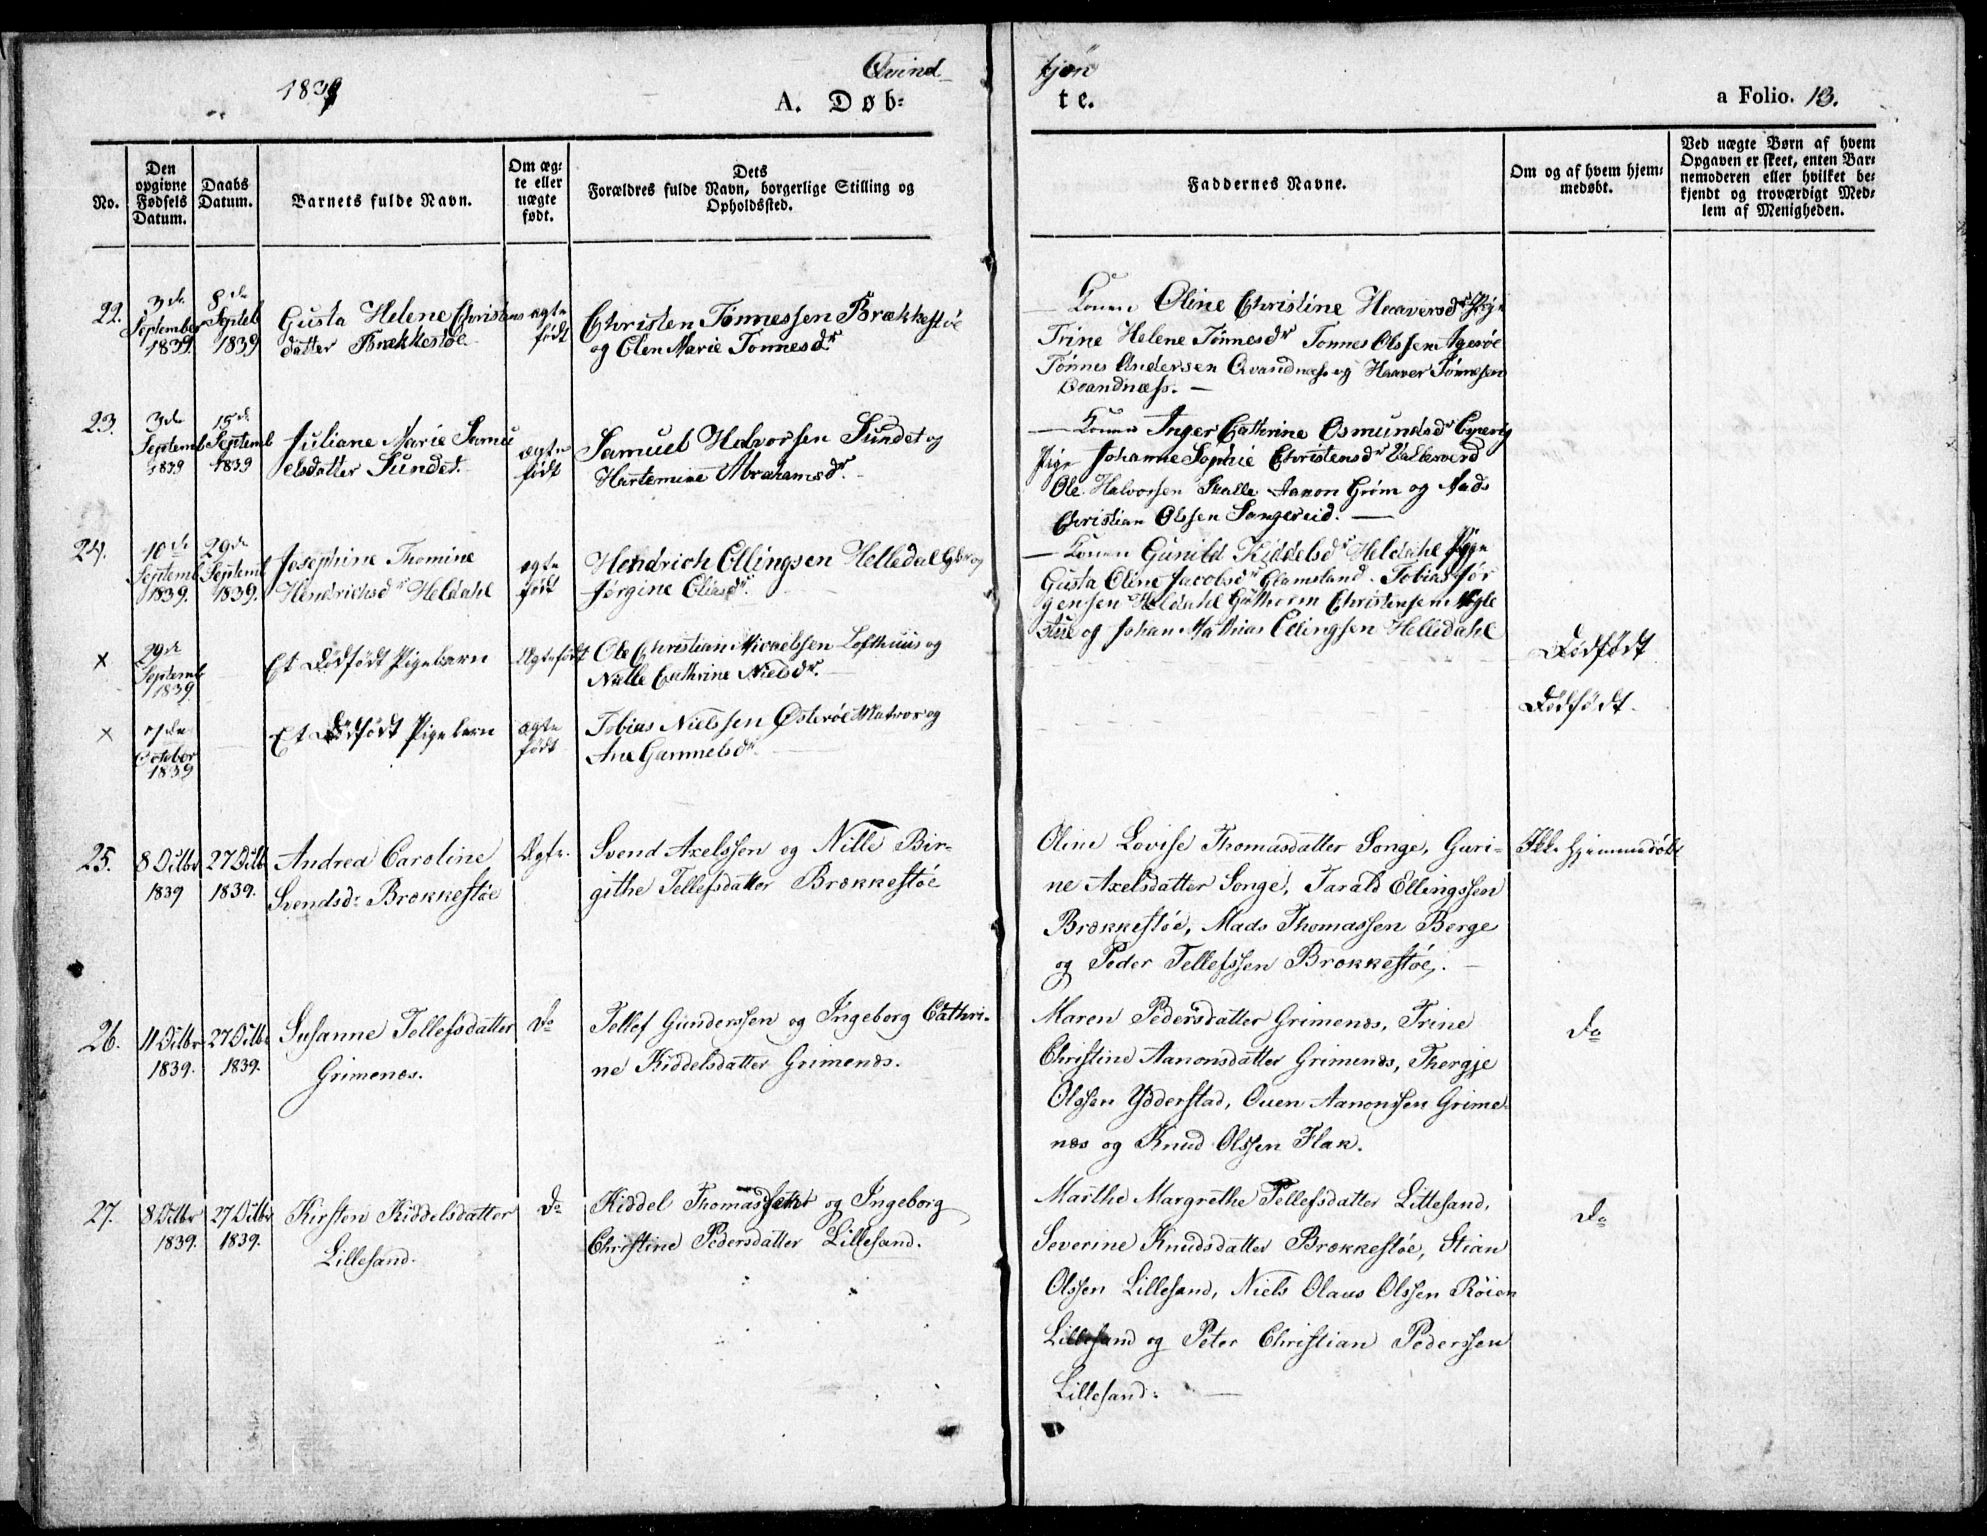 1839
Qvind- kjøn
A. Døb- te.
a Folio. 13.
No.
Den opgivne Fødsels Datum.
Daabs Datum.
Barnets fulde Navn.
Om æg- te eller uægte født.
Dets Forældres fulde Navn, borgerlige Stilling og Opholdssted.
Faddernes Navne.
Om og af hvem hjem- medøbt.
Ved uægte Børn af hvem Opgaven er skeet, enten Bar- nemoderen eller hvilket be- kjendt og troværdigt Med- lem af Menigheden.
22. 3de September 1839 8de Septeb 1839
Gusta Helene Christens
datter Brækkestøe
ægte født
Christen Tønnessen Brækkestøe
og Olen Marie Tønnesdr
Konen Oline Christine Haaversdr
Trine Helene Tønnesdr Tønnes Olssen Agerøe
Tønnes Andersen Qvandnæss og Haaver Tønnesen
Qvandnæss. —
23. 3de Septemb 1839 15de Septemb 1839
Juliane Marie Samu
elsdatter Sundet
ægte født
Samuel Halvorsen Sundet og
Hartemine Abrahamsdr.
— Konen Inger Cathrine Osmundsdr
Pige Johanne Sophie Christensdr Vallesverd
Ole Halvorssen Skalle Aanon Grøm og Mads
Christian Olssen Sangereid. —
24. 10de Septemb 1839. 29de Septemb 1839.
Josephine Thomine
Hendrichsdr Heldahl
ægte født
Hendrich Ellingsen Helledal Gbr og
Jørgine Eliasdr
— Konen Gunild Kiddelsd Heldahl Pige
Gusta Oline Jacobsdr Glamsland. Tobias Jør
gensen Heldahl Guthorm Christensen
og Johan Mathias Ellingsen Helledahl
x 29de Septemb 1839
Et Dødfødt Pigebarn
Ægtefødt
Ole Christian Micaelssen Lofthuus og
Nille Cathrine Nielsdr.
Dødfødt
x October 1839
Et Dødfødt Pigebarn
ægte født
Tobias Nielssen Østerøe Matros og
Ane Gammelsdr.
Dødfødt.
25. 8 Octbr 1839 27 Octb 1839.
Andrea Caroline
Svendsdr Brækkestøe
Ægte.
Svend Axelssen og Nille Bir-
githe Tellefsdatter Brækkestøe
Oline Lovise Thomasdatter Songe, Guri-
ne Axelsdatter Songe, Tarald Ellingssen
Brækkestøe, Mads Thomassen Berge
og Peder Tellefssen Brækkestøe. —
Ikke hjemmedøbt
26. 11 Octbr 1839. 27 Octbr 1839.
Susanne Tellefsdatter
Grimenæs.
Do
Tellef Gunderssen og Ingeborg Cathri-
ne Kiddelsdatter Grimenæs.
Maren Pedersdatter Grimenæs, Trine
Christine Aanonsdatter Grimenæs, Thergje
Olssen Ydderstad, Ouen Aanonssen Grime-
næs og Knud Olssen Flak.
Do
27. 8 Octbr 1839. 27 Octbr 1839.
Kirsten Kiddelsdatter
Lillesand.
Do
Kiddel Thomassen og Ingeborg
Christine Pedersdatter Lillesand.
Marthe Margrethe Tellefsdatter Lillesand,
Severine Knudsdatter Brækkestøe, Stian
Olssen Lillesand, Niels Olaus Olssen Røien
Lillesand og Peter Christian Pederssen
Lillesand. —
Do